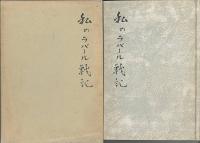 私のラバール戦記
私のラバール戦記